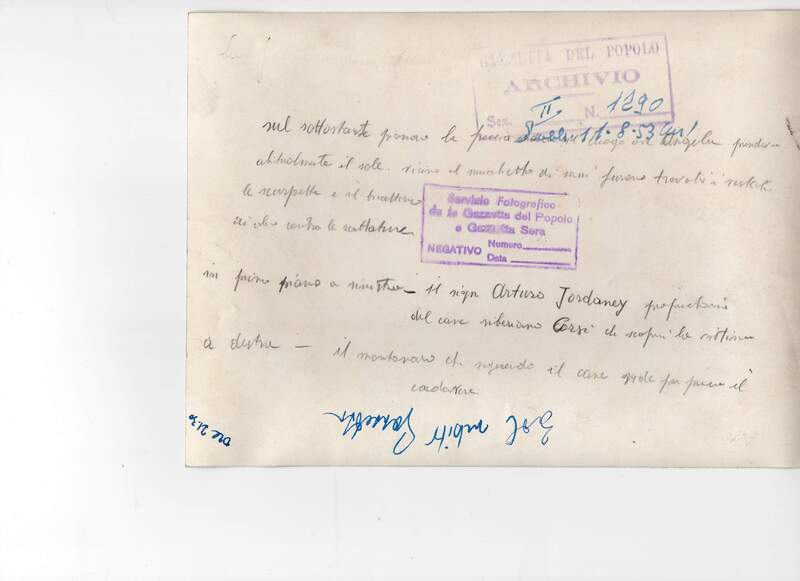 GAZZETTA DEL POPOLO
ARCHIVIO
Sez. II. N. 1290
11-8-53
sul sottostante la Angela prendeva
abitualmente il sole. vicino il mucchietto di sassi furono trovati i vestiti
le scarpette e il
contro le scottature
Servizio Fotografico
de la Gazzetta del Popolo
e Gazzetta Sera
NEGATIVO Numero
Data
in primo piano a sinistra — il sign Arturo Jordaney proprietario
del cane siberiano che scoprì la vittima
a destra — il montanaro che seguendo il cane vide per primo il
cadavere
Gazzetta
ore 21.30